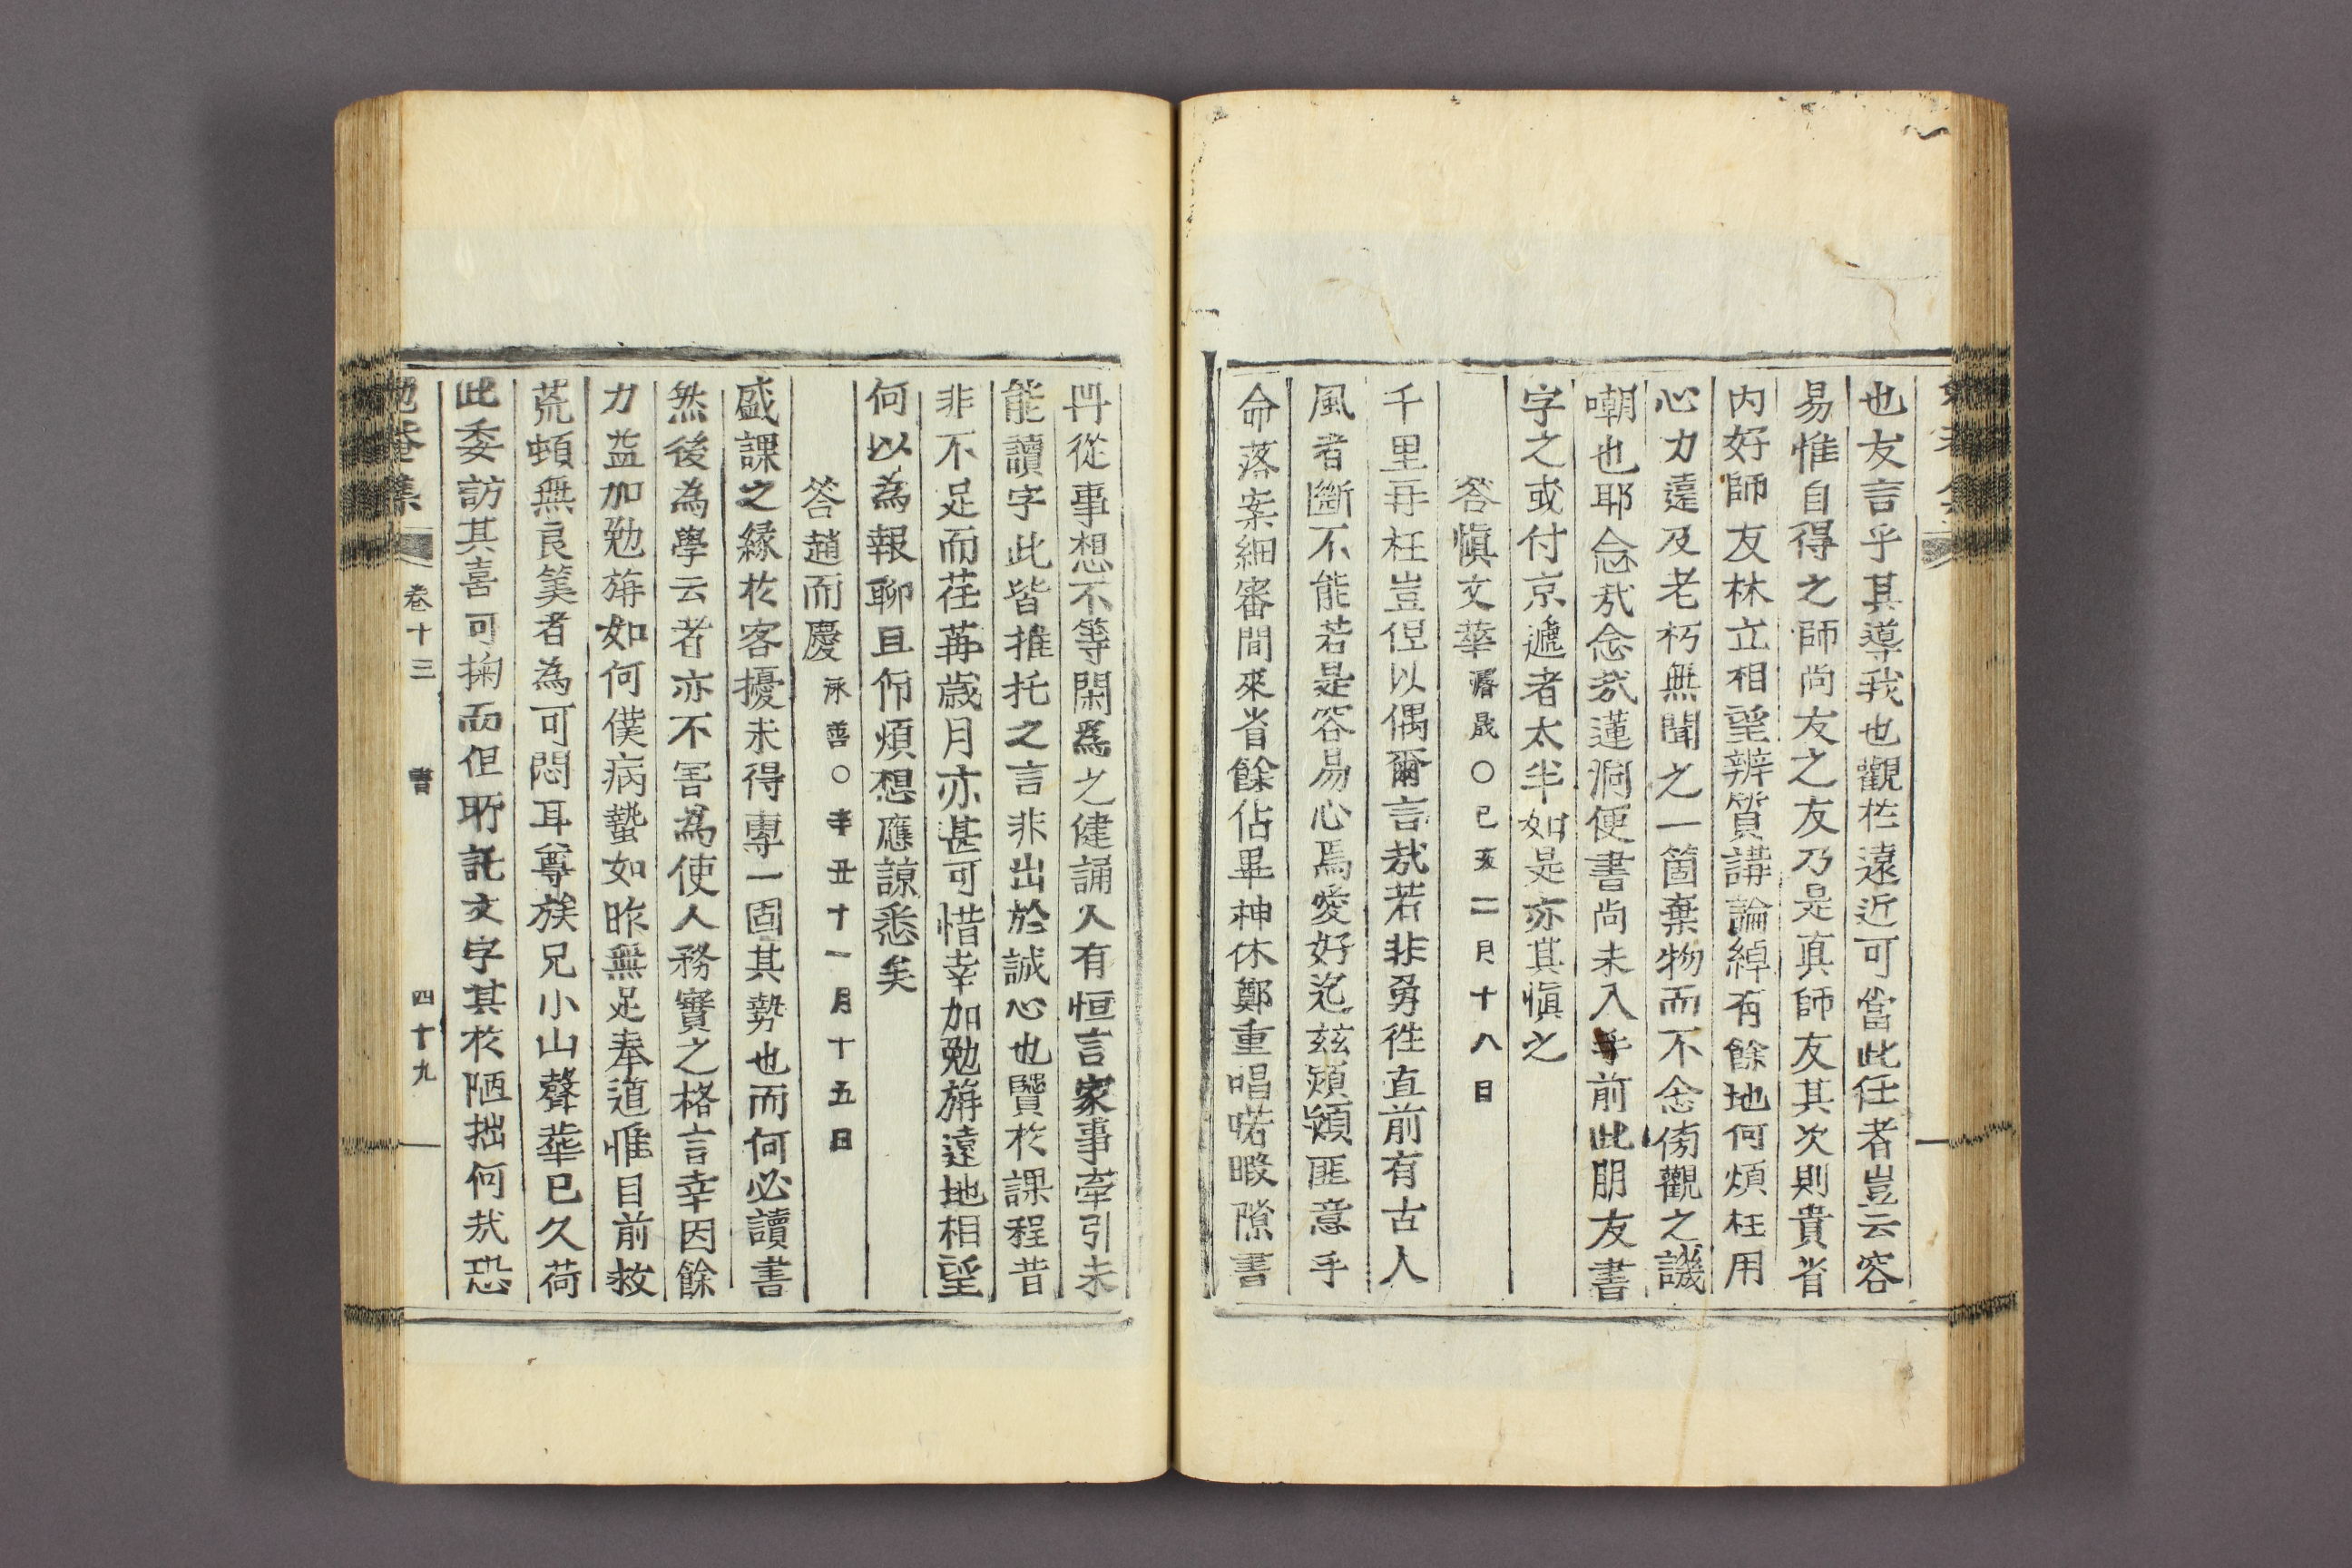 也友言乎其導我也觀於遠近可當此任者豈云容
易惟自得之師尚友之友乃是眞師友其次則貴省
內好師友林立相望辨質講論綽有餘地何煩枉用
心力遠及老朽無聞之一箇棄物而不念傍觀之譏
嘲也耶念哉念哉蓮洞便書尚未入手前此朋友書
字之或付京遞者太半如是亦其愼之
答愼文華 濬晟○己亥二月十八日
千里再枉豈但以偶爾言哉若非勇徃直前有古人
風者斷不能若是容易心焉愛好迄玆熲熲匪意手
命落案細審間來省餘佔畢神休鄭重唱喏暇隙書
冊從事想不等閑爲之健誦人有恒言家事牽引未
能讀字此皆推托之言非出於誠心也贒於課程昔
非不足而荏苒歲月亦甚可惜幸加勉旃遠地相望
何以為報聊且仰煩想應諒悉矣
答趙而慶 永善○辛丑十一月十五日
盛課之緣於客擾未得專一固其勢也而何必讀書
然後為學云者亦不害爲使人務實之格言幸因餘
力益加勉旃如何僕病蟄如昨無足奉道惟目前救
荒頓無良筭者為可悶耳尊族兄小山聲華已久荷
此委訪其喜可掬而但所託文字其於陋拙何哉恐
勉菴集 卷十三 書 四十九